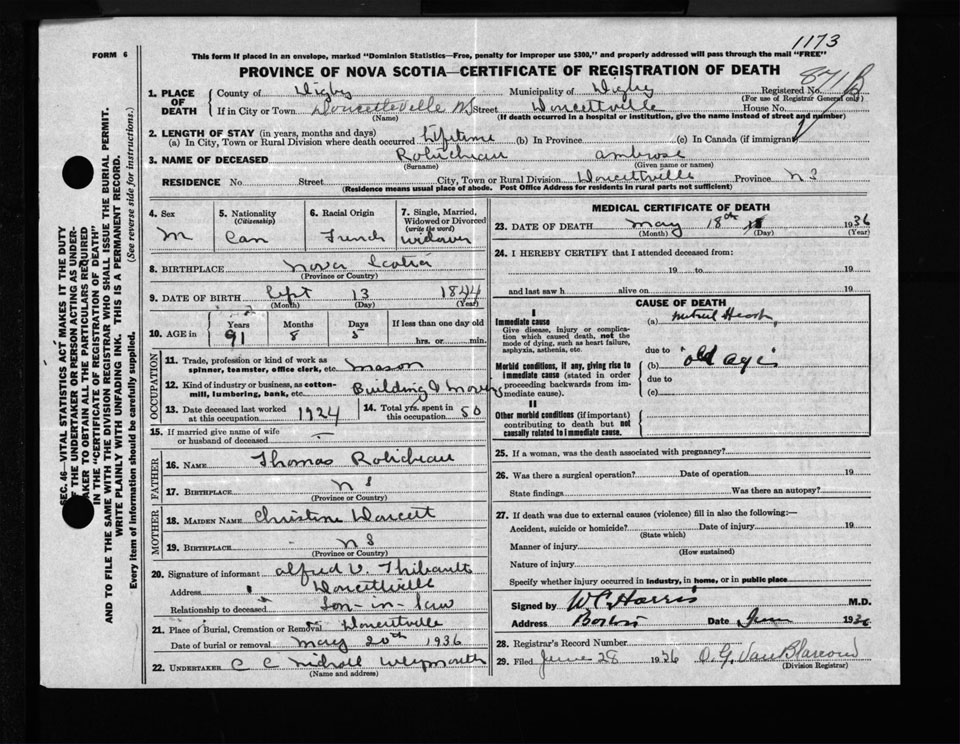 1173
FORM 6
This form if placed in an envelope, marked "Dominion Statistics—Free, penalty for improper use $300," and properly addressed will pass through the mail "FREE"
PROVINCE OF NOVA SCOTIA—CERTIFICATE OF REGISTRATION OF DEATH
871 B
1. PLACE OF DEATH
County of Digby Municipality of Digby Registered No.
(For use of Registrar General only)
If in City or Town Doucetteville Street Doucettville House No.
(Name) (If death occurred in a hospital or institution, give the name instead of street and number)
2. LENGTH OF STAY (in years, months and days)
(a) In City, Town or Rural Division where death occurred Lifetime (b) In Province (c) In Canada (if immigrant)
3. NAME OF DECEASED Robicheau Ambrose
(Surname) (Given name or names)
RESIDENCE No Street City, Town or Rural Division Doucettville Province N S
(Residence means usual place of abode. Post Office Address for residents in rural parts not sufficient)
4. Sex M
5. Nationality (Citizenship) Can
6. Racial Origin French
7. Single, Married, Widowed or Divorced (write the word) Widower
8. BIRTHPLACE Nova Scotia
(Province or Country)
9. DATE OF BIRTH Sept 13 1844
(Month) (Day) (Year)
10. AGE in Years 91 Months 8 Days 5 If less than one day old hrs. or min.
OCCUPATION
11. Trade, profession or kind of work as spinner, teamster, office clerk, etc. Mason
12. Kind of industry or business, as cotton-mill, lumbering, bank, etc. Building & Moving
13. Date deceased last worked at this occupation 1924
14. Total yrs. spent in this occupation 50
15. If married give name of wife or husband of deceased —
FATHER
16. NAME Thomas Robicheau
17. BIRTHPLACE N S
(Province or Country)
MOTHER
18. MAIDEN NAME Christine Doucett
19. BIRTHPLACE N S
(Province or Country)
20. Signature of informant Alfred V. Thibault
Address Doucettville
Relationship to deceased Son-in-law
21. Place of Burial, Cremation or Removal Doucettville
Date of burial or removal May 20th 1936
22. UNDERTAKER C C Nicholl Weymouth
(Name and address)
MEDICAL CERTIFICATE OF DEATH
23. DATE OF DEATH May 18th 1936
(Month) (Day) (Year)
24. I HEREBY CERTIFY that I attended deceased from:
19 to 19
and last saw h alive on 19
CAUSE OF DEATH
I
Immediate cause (a) Mitral Heart
Give disease, injury or complication which caused death, not the mode of dying, such as heart failure, asphyxia, asthenia, etc.
due to
Morbid conditions, if any, giving rise to immediate cause (stated in order proceeding backwards from immediate cause).
(b) "old age"
due to
(c)
II
Other morbid conditions (if important) contributing to death but not causally related to immediate cause.
25. If a woman, was the death associated with pregnancy?
26. Was there a surgical operation? Date of operation 19
State findings Was there an autopsy?
27. If death was due to external causes (violence) fill in also the following:—
Accident, suicide or homicide? Date of injury 19
(State which)
Manner of injury
(How sustained)
Nature of injury
Specify whether injury occurred in industry, in home, or in public place
Signed by W C Harris M.D.
Address Date June 1936
28. Registrar's Record Number
29. Filed June 28 1936 O. G. Van Blarcom
(Division Registrar)
SEC. 46—VITAL STATISTICS ACT MAKES IT THE DUTY
OF THE UNDERTAKER OR PERSON ACTING AS UNDER-
TAKER TO OBTAIN ALL THE PARTICULARS REQUIRED
IN THE "CERTIFICATE OF REGISTRATION OF DEATH"
AND TO FILE THE SAME WITH THE DIVISION REGISTRAR WHO SHALL ISSUE THE BURIAL PERMIT.
WRITE PLAINLY WITH UNFADING INK. THIS IS A PERMANENT RECORD.
Every item of information should be carefully supplied. (See reverse side for instructions.)